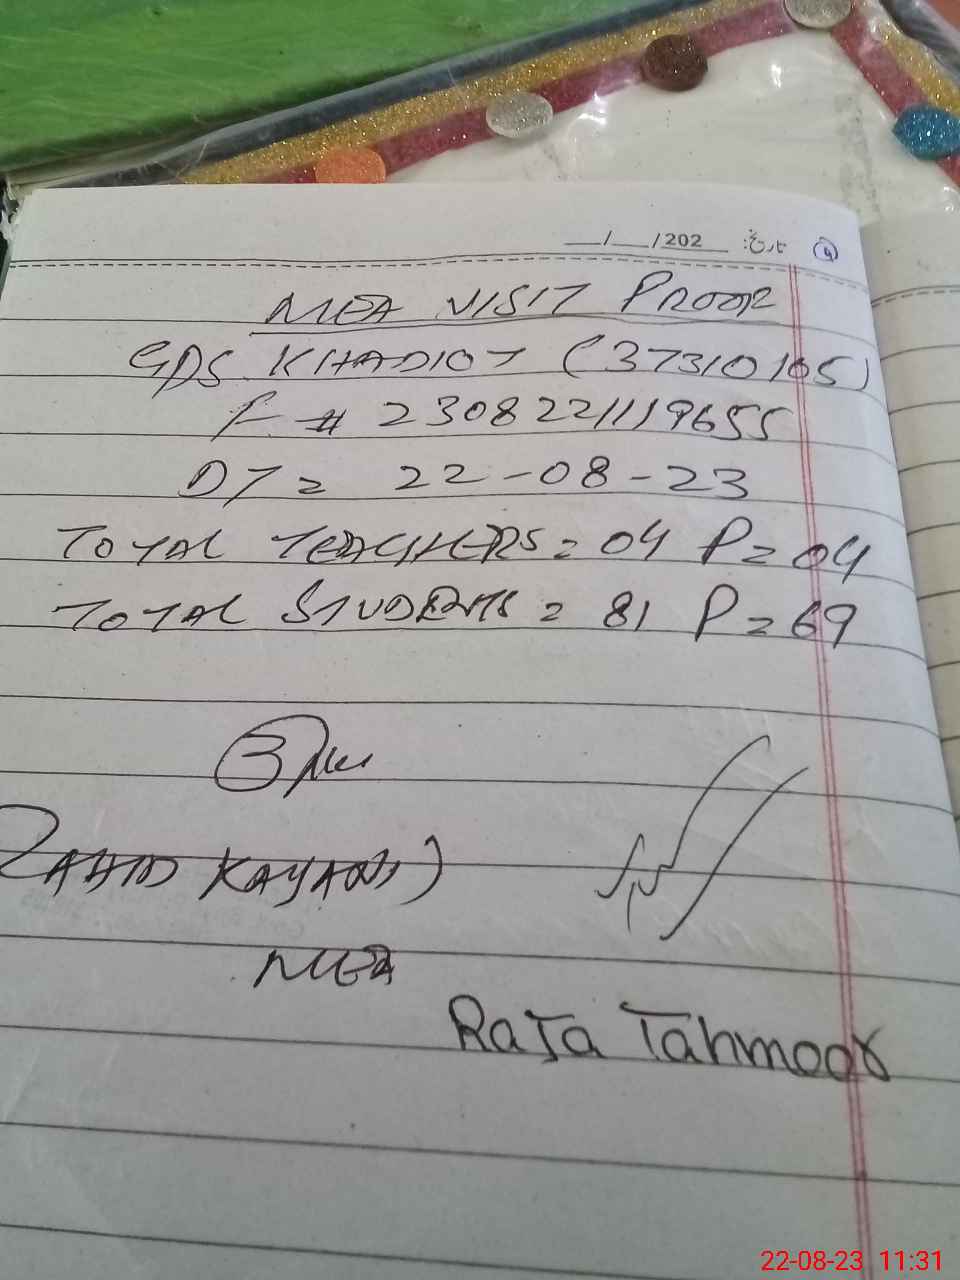 __/__/202__ تاریخ:
MEA VISIT PROOF
GPS KHADIOT (37310105)
F # 2308221119655
DT = 22-08-23
TOTAL TEACHERS = 04 P = 04
TOTAL STUDENTS = 81 P = 69
ZAHID KAYANI)
MEA
RaJa Tahmoor
22-08-23 11:31